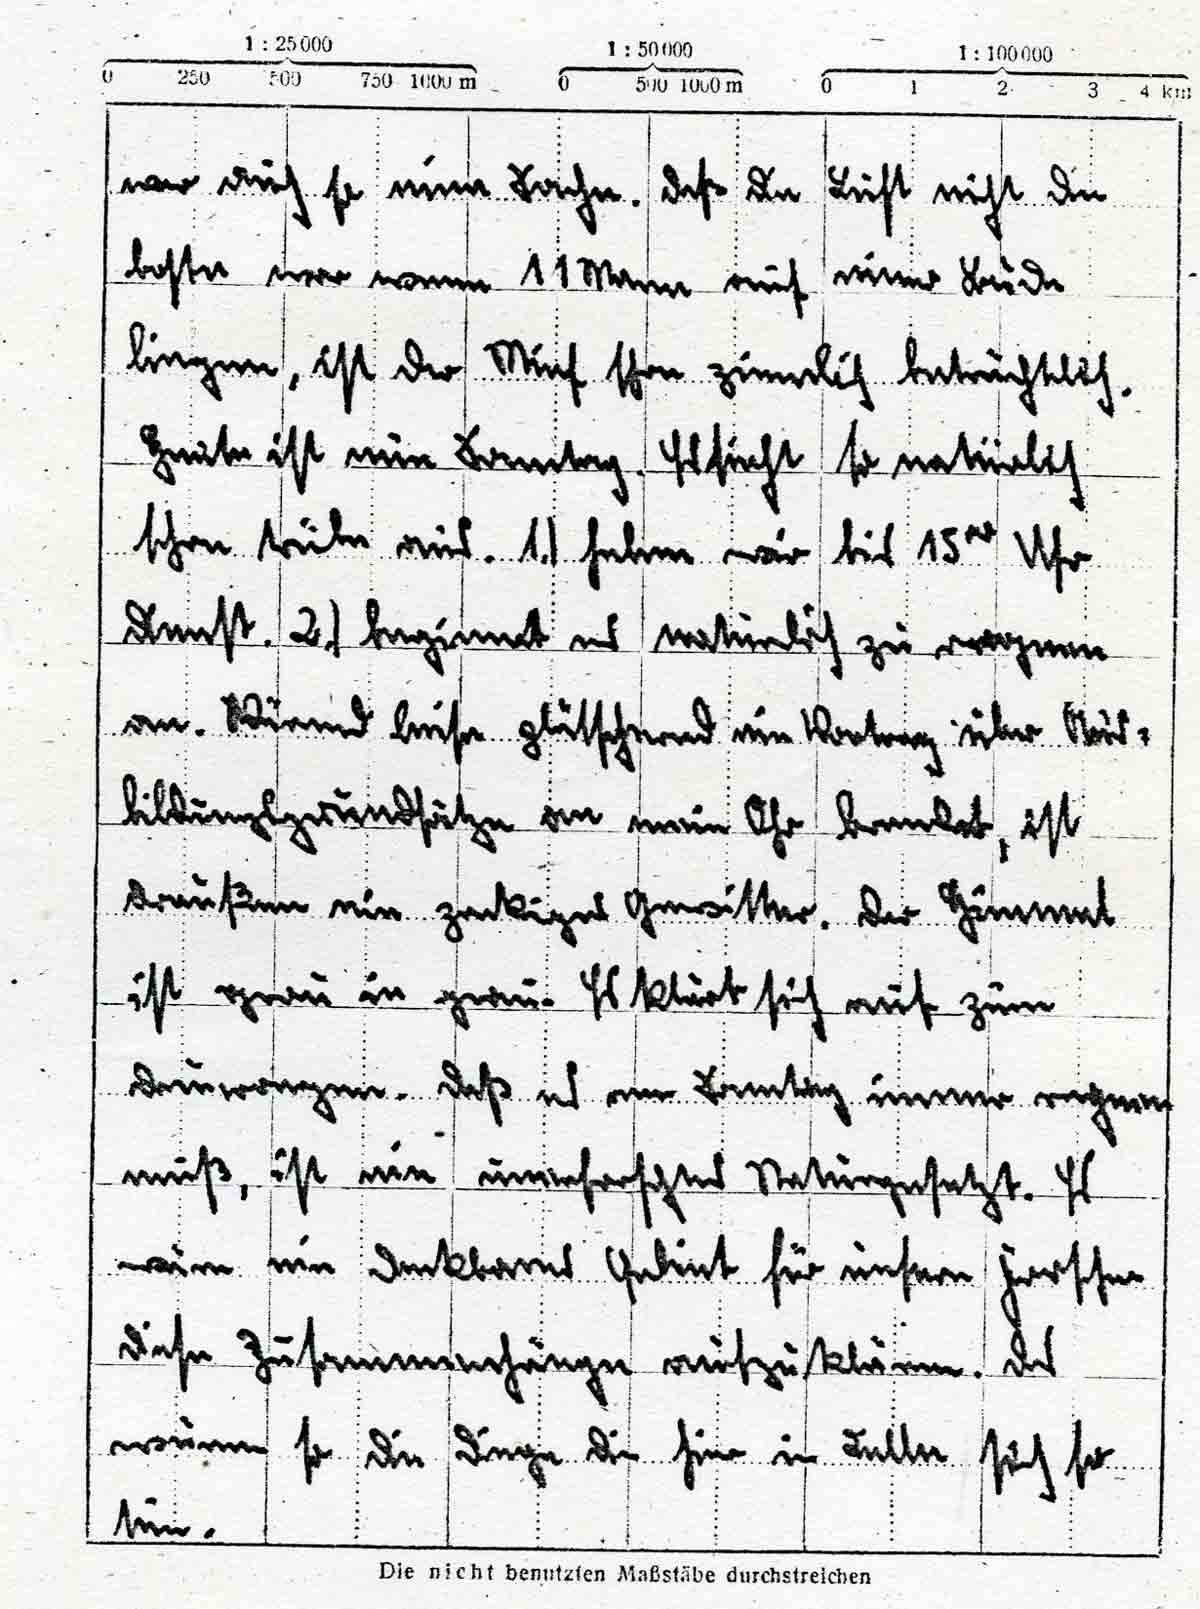 1 : 25 000 1 : 50 000 1 : 100 000
0 250 500 750 1000 m 0 500 1000 m 0 1 2 3 4 km
war auch so eine Sache. daß die Luft nicht die
beste war wenn 11 Mann auf einer Bude
liegen, ist der Muf schon ziemlich beträchtlich.
Heute ist nun Sonntag. Es sieht so natürlich
schon trübe aus. 1.) haben wir bis 15⁰⁰ Uhr
Dienst. 2.) beginnt es natürlich zu regnen
an. Wärend leise plätschernd ein Vortrag über Aus-
bildungsgrundsätze an mein Ohr brandet, ist
draußen ein zackiges Gewitter. Der Himmel
ist grau in grau. Es klärt sich auf zum
Dauerregen. Daß es am Sonntag immer regnen
muß, ist ein unerforschtes Naturgesetzt. Es
wäre ein dankbares Gebiet für unsere
diese Zusammenhänge aufzuklären. Das
wären so die Dinge die hier in Celle sich so
tun.
Die nicht benutzten Maßstäbe durchstreichen